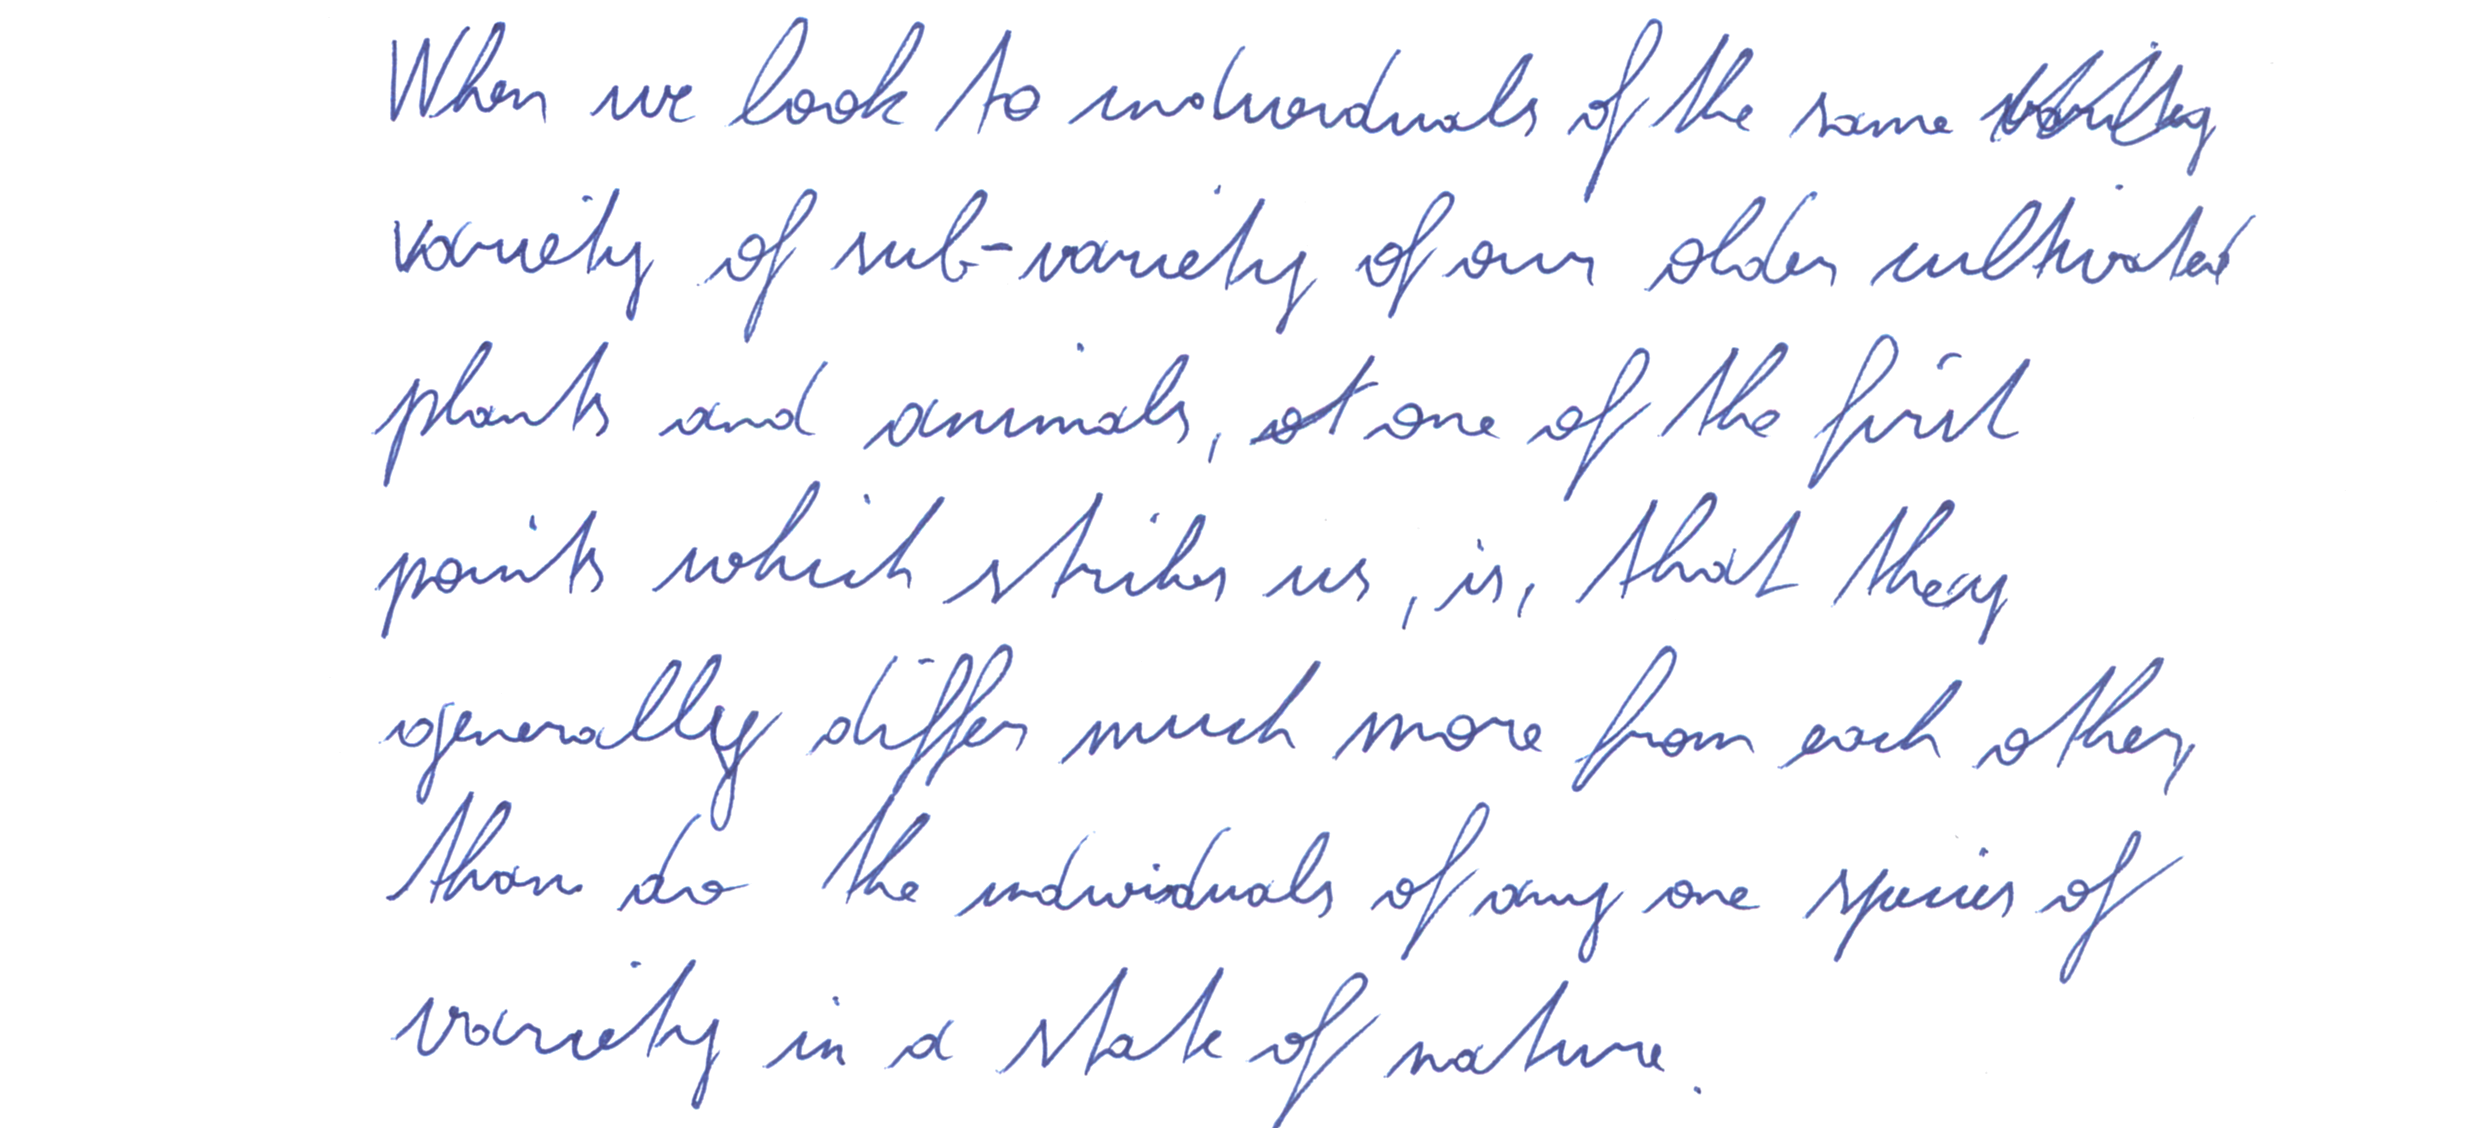 When we look to individuals of the same
variety of sub-variety of our older cultivated
plants and animals, at one of the first
points which strikes us, is, that they
generally differ much more from each other,
than do the individuals of any one species of
variety in a state of nature.